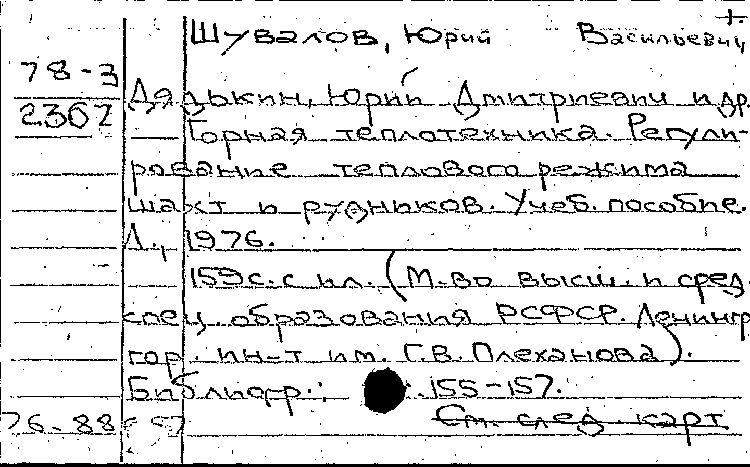 +.
Шувалов, Юрий Васильевич
78-3
2362
Дядькин, Юрий Дмитриевич и др.
Горная теплотехника. Регули-
рование теплового режима
шахт и рудников. Учеб. пособие.
Л., 1976.
159 с. с ил. (М-во высш. и сред.
спец. образования РСФСР. Ленингр.
гор. ин-т им. Г.В. Плеханова).
Библиогр.: с. 155-157.
См. след. карт
76-88